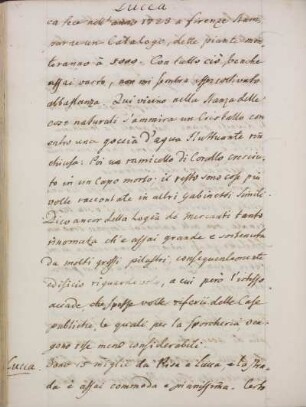 Lucca
ca fece nell'anno 1723 a firenze stam,
pare un Catalogo, delle piante mon,
teranno à 5000. Con tutto ciò, benche
assai vasto, non mi sembra esser coltivato
abbastanza. Qui vicino nella Stanza delle
cose naturali s'ammira un Cristallo con
entro una goccia d'aqua fluttuante rin
chiusa: Poi un ramicello di Corallo cresciu,
to in un Capo morto: il resto sono cose più
volte raccontate in altri Gabinetti simili.
Dico ancor della Logia de Mercanti tanto
rinomata ch'è assai grande e sostenuta
da molti grossi pilastri, conseguentemente
edificio riguardevole, a cui però l'istesso
accade che spesse volte riferii delle Case
publiche, le quali per la sporcheria ven,
gono rese meno considerabili.
Lucca
Sono 15 miglia da Pisa a Luca e la stra,
da è assai commoda e pianissima. Certo